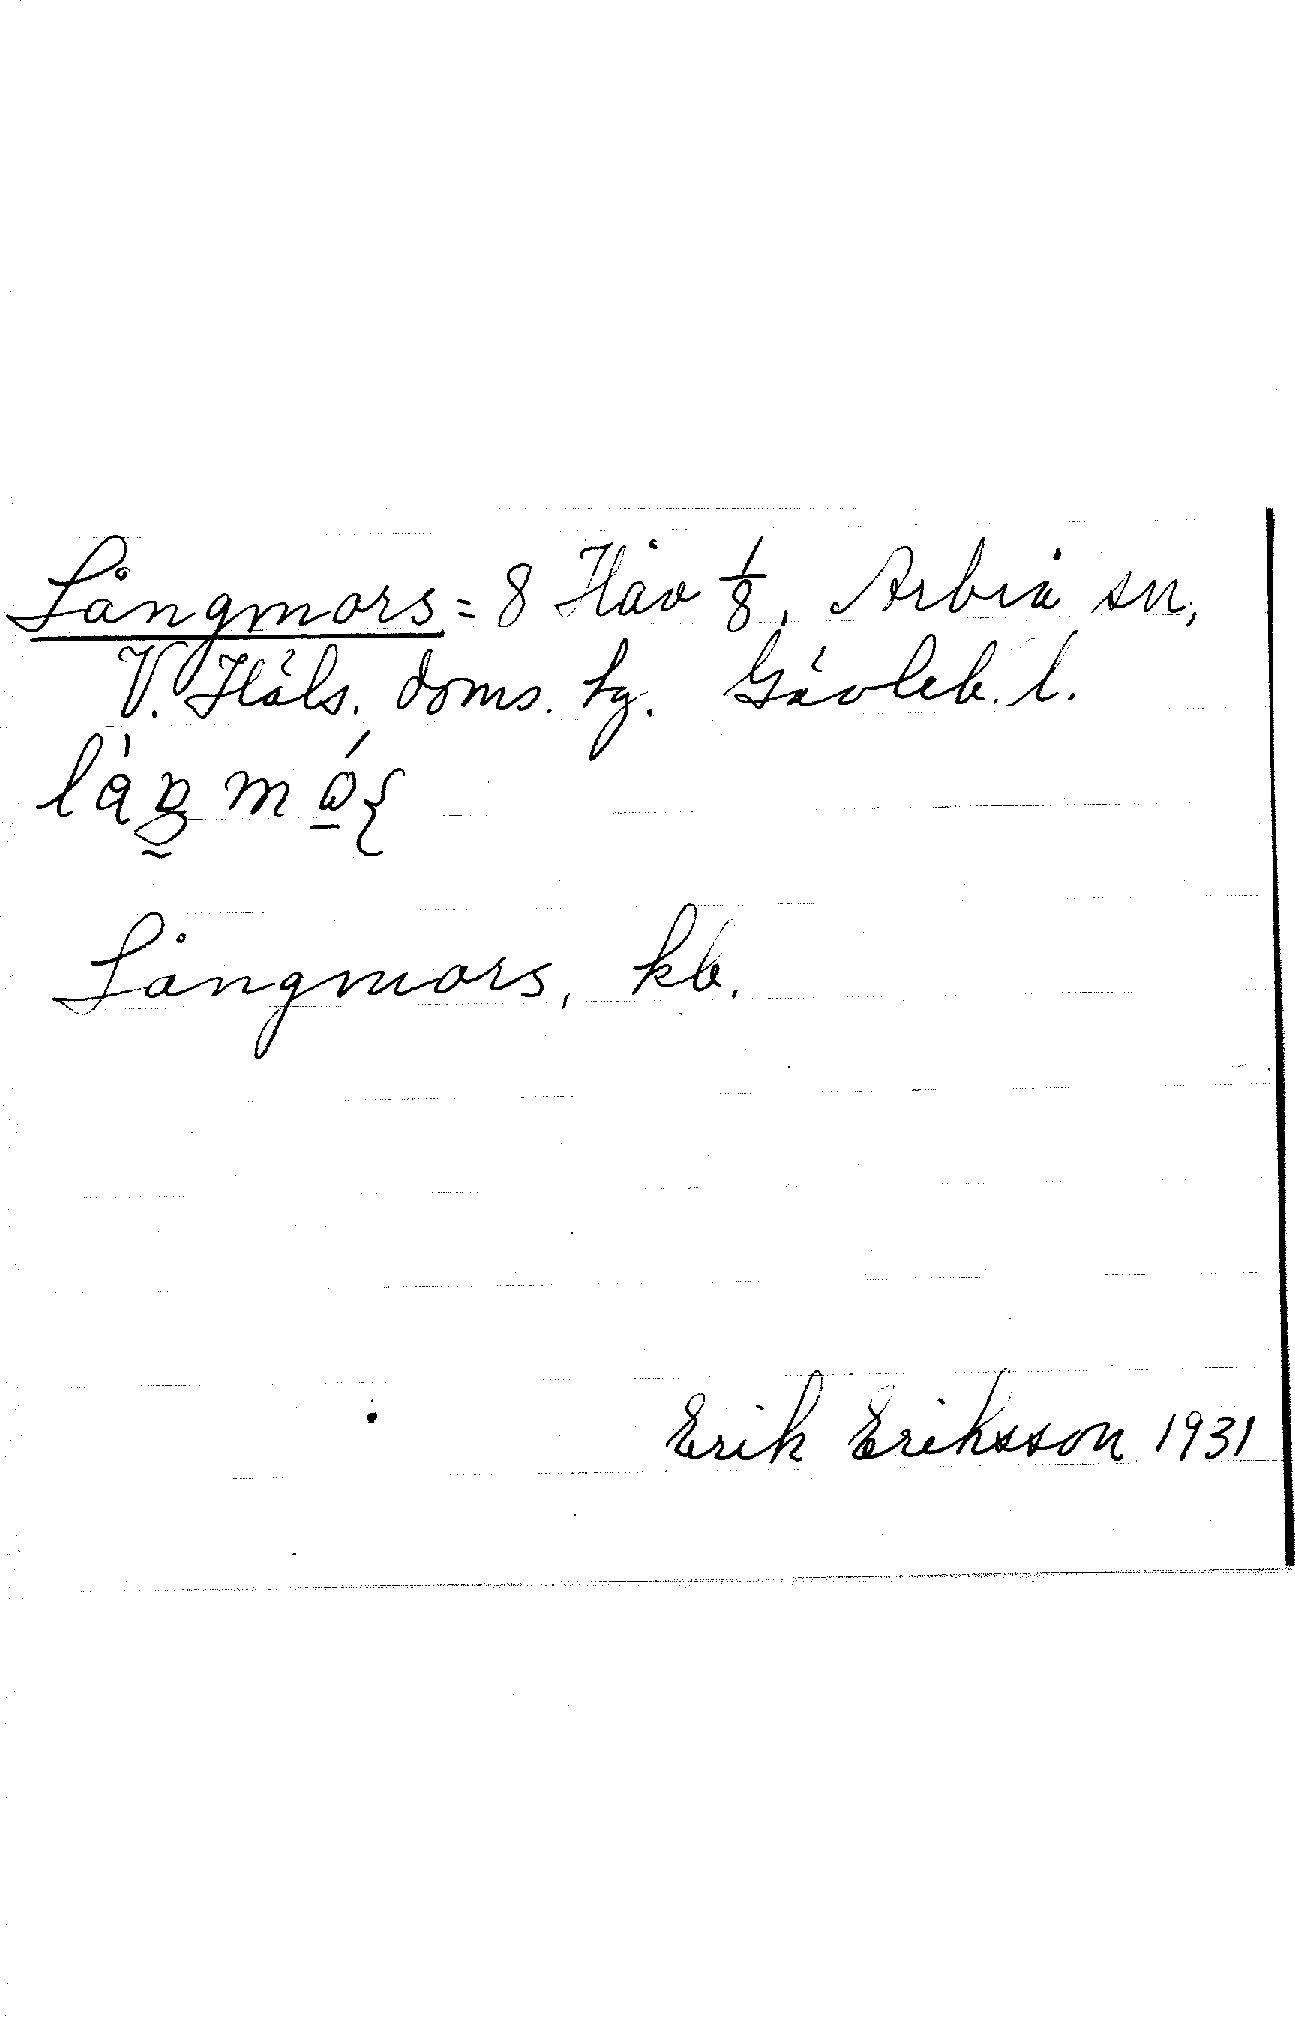 Långmors = 8 Håv 1/8, Arbrå sn,
V. Häls. doms. hg. Gävleb. l.
Långmors, kb.
Erik Eriksson 1931